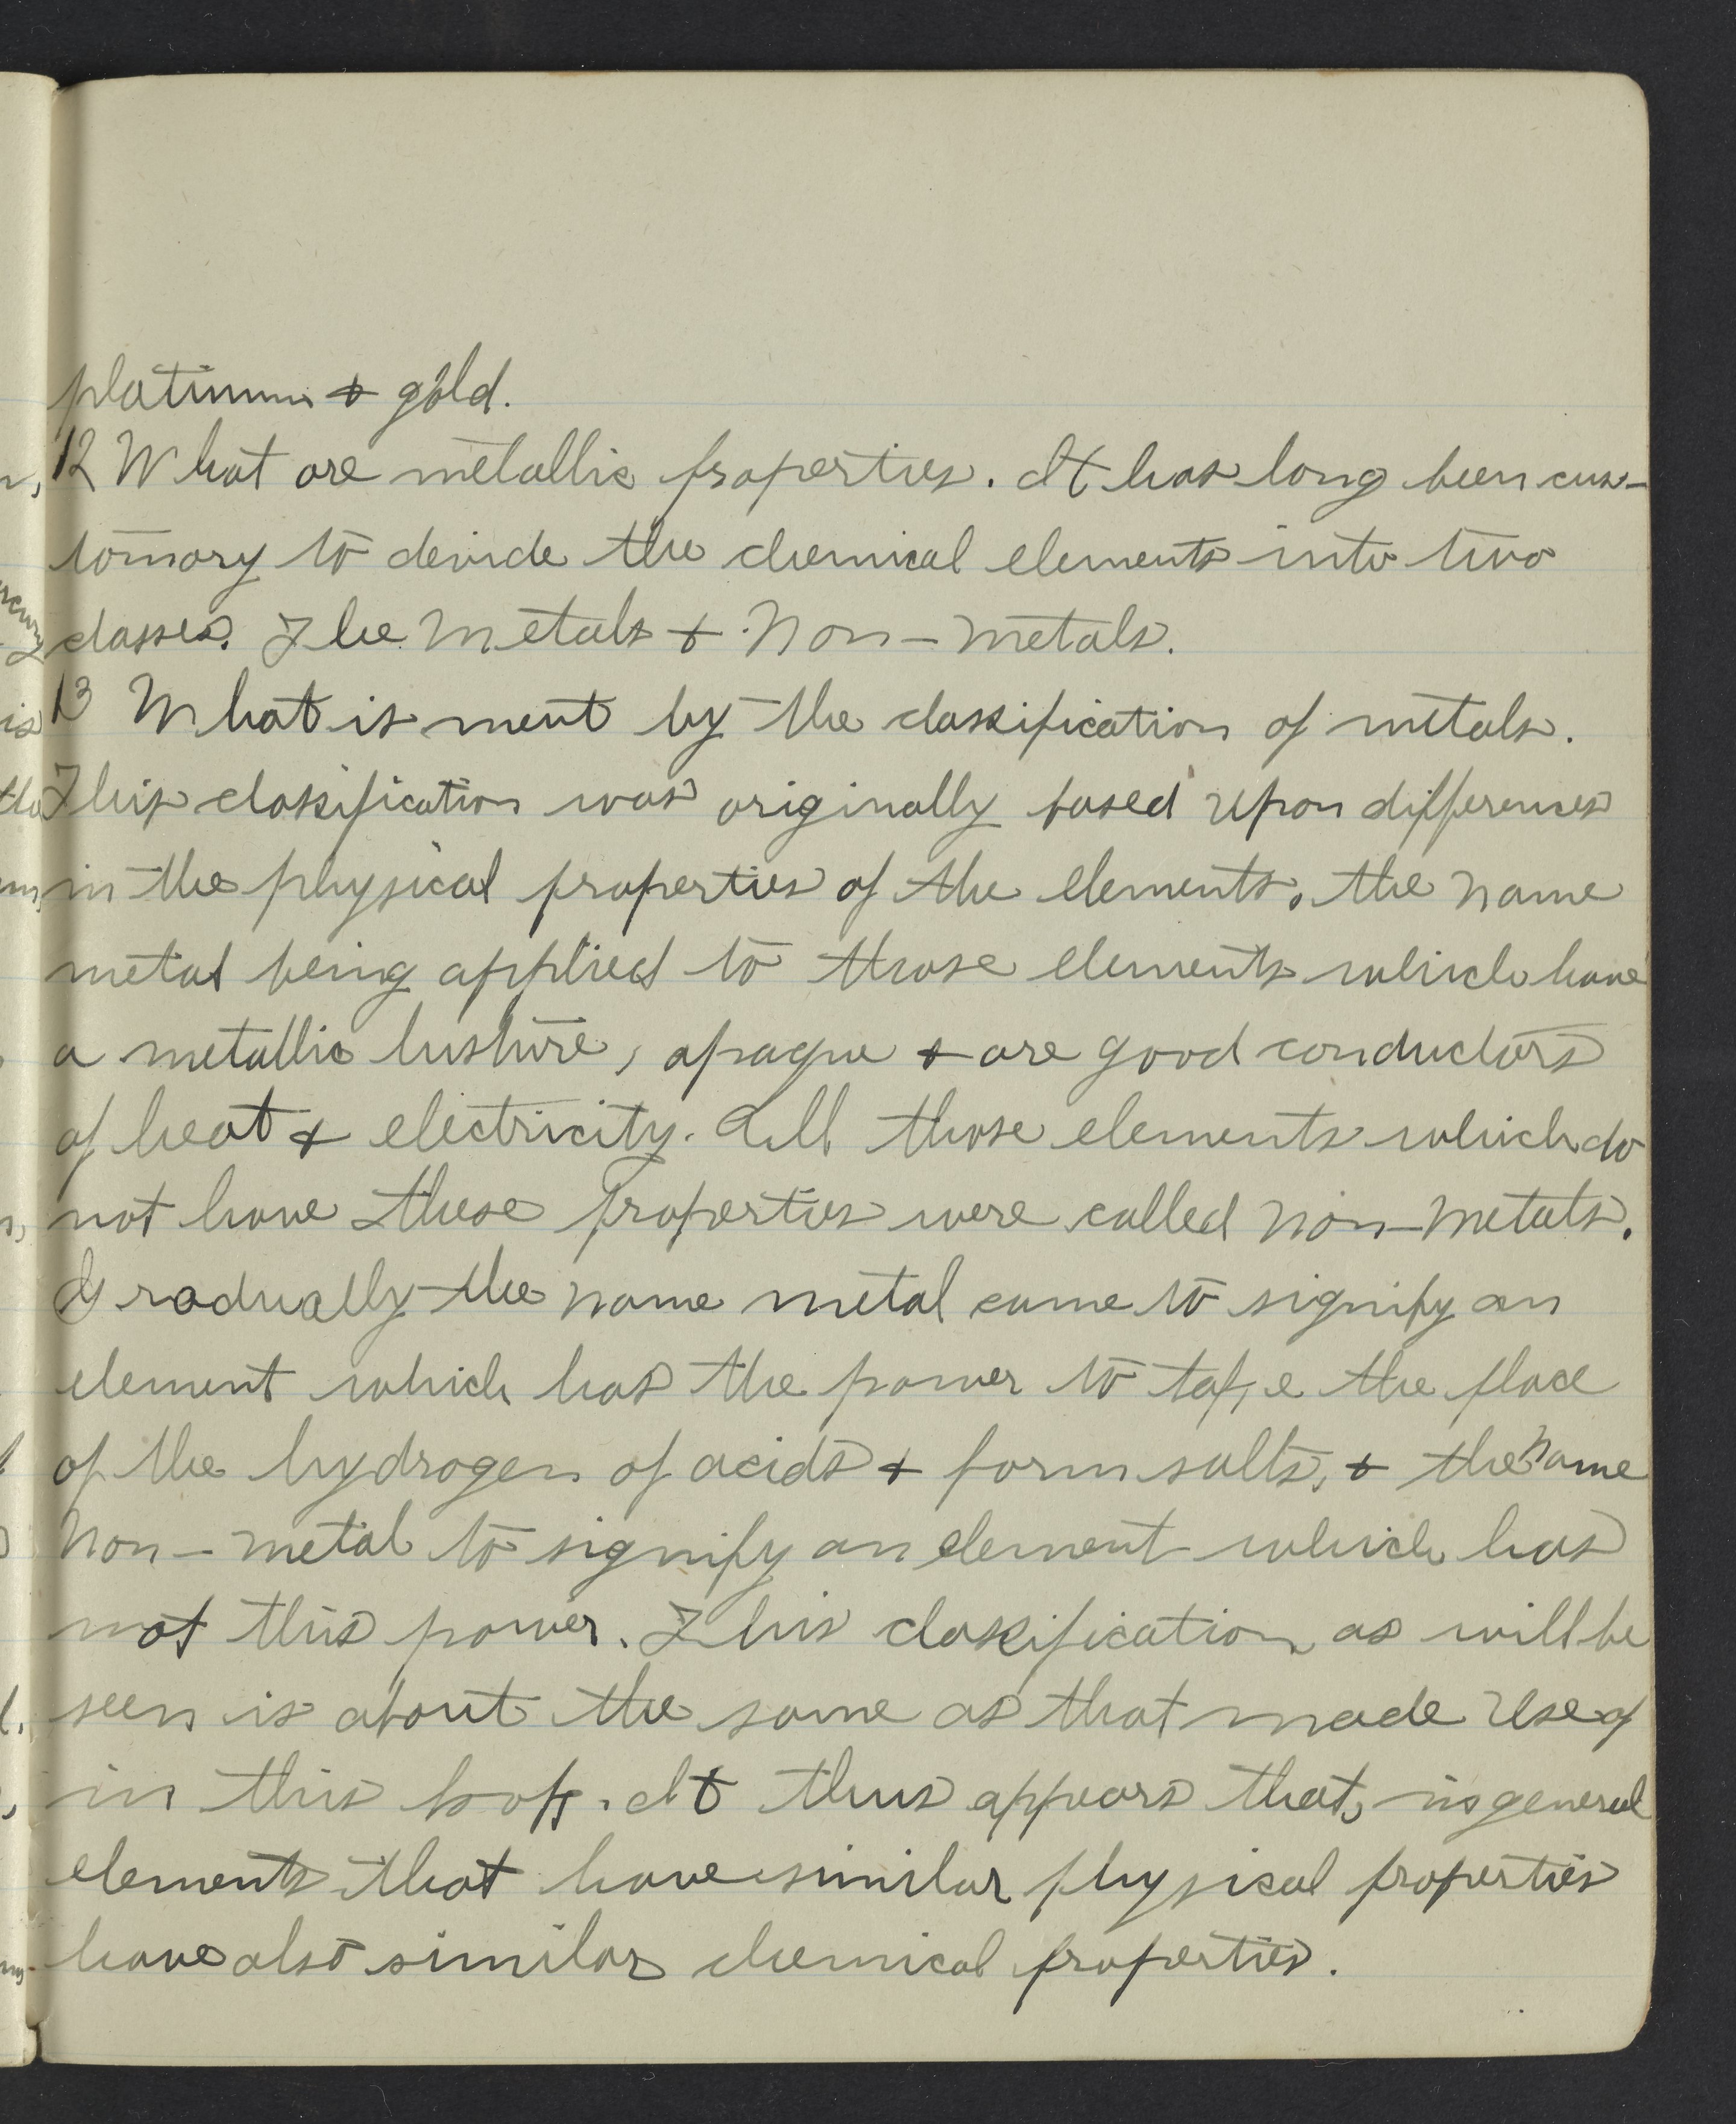 platinum + gold.
12 What are metallic properties. It has long been cus-
tomary to devide the chemical elements into two
classes. The Metals + Non-metals.
13 What is ment by the classification of metals.
This classification was originally based upon differences
in the physical properties of the elements, the name
metal being applied to those elements which have
a metallic lusture, opaque + are good conductors
of heat + electricity. All those elements which do
not have these Properties were called Non-metals.
Gradually the name metal came to signify an
element which has the power to take the place
of the hydrogen of acids + form salts, + the name
Non-metal to signify an element which has
not this power. This classification as will be
seen is about the same as that made use of
in this book. It thus appears that, in general
elements that have similar physical properties
have also similar chemical properties.